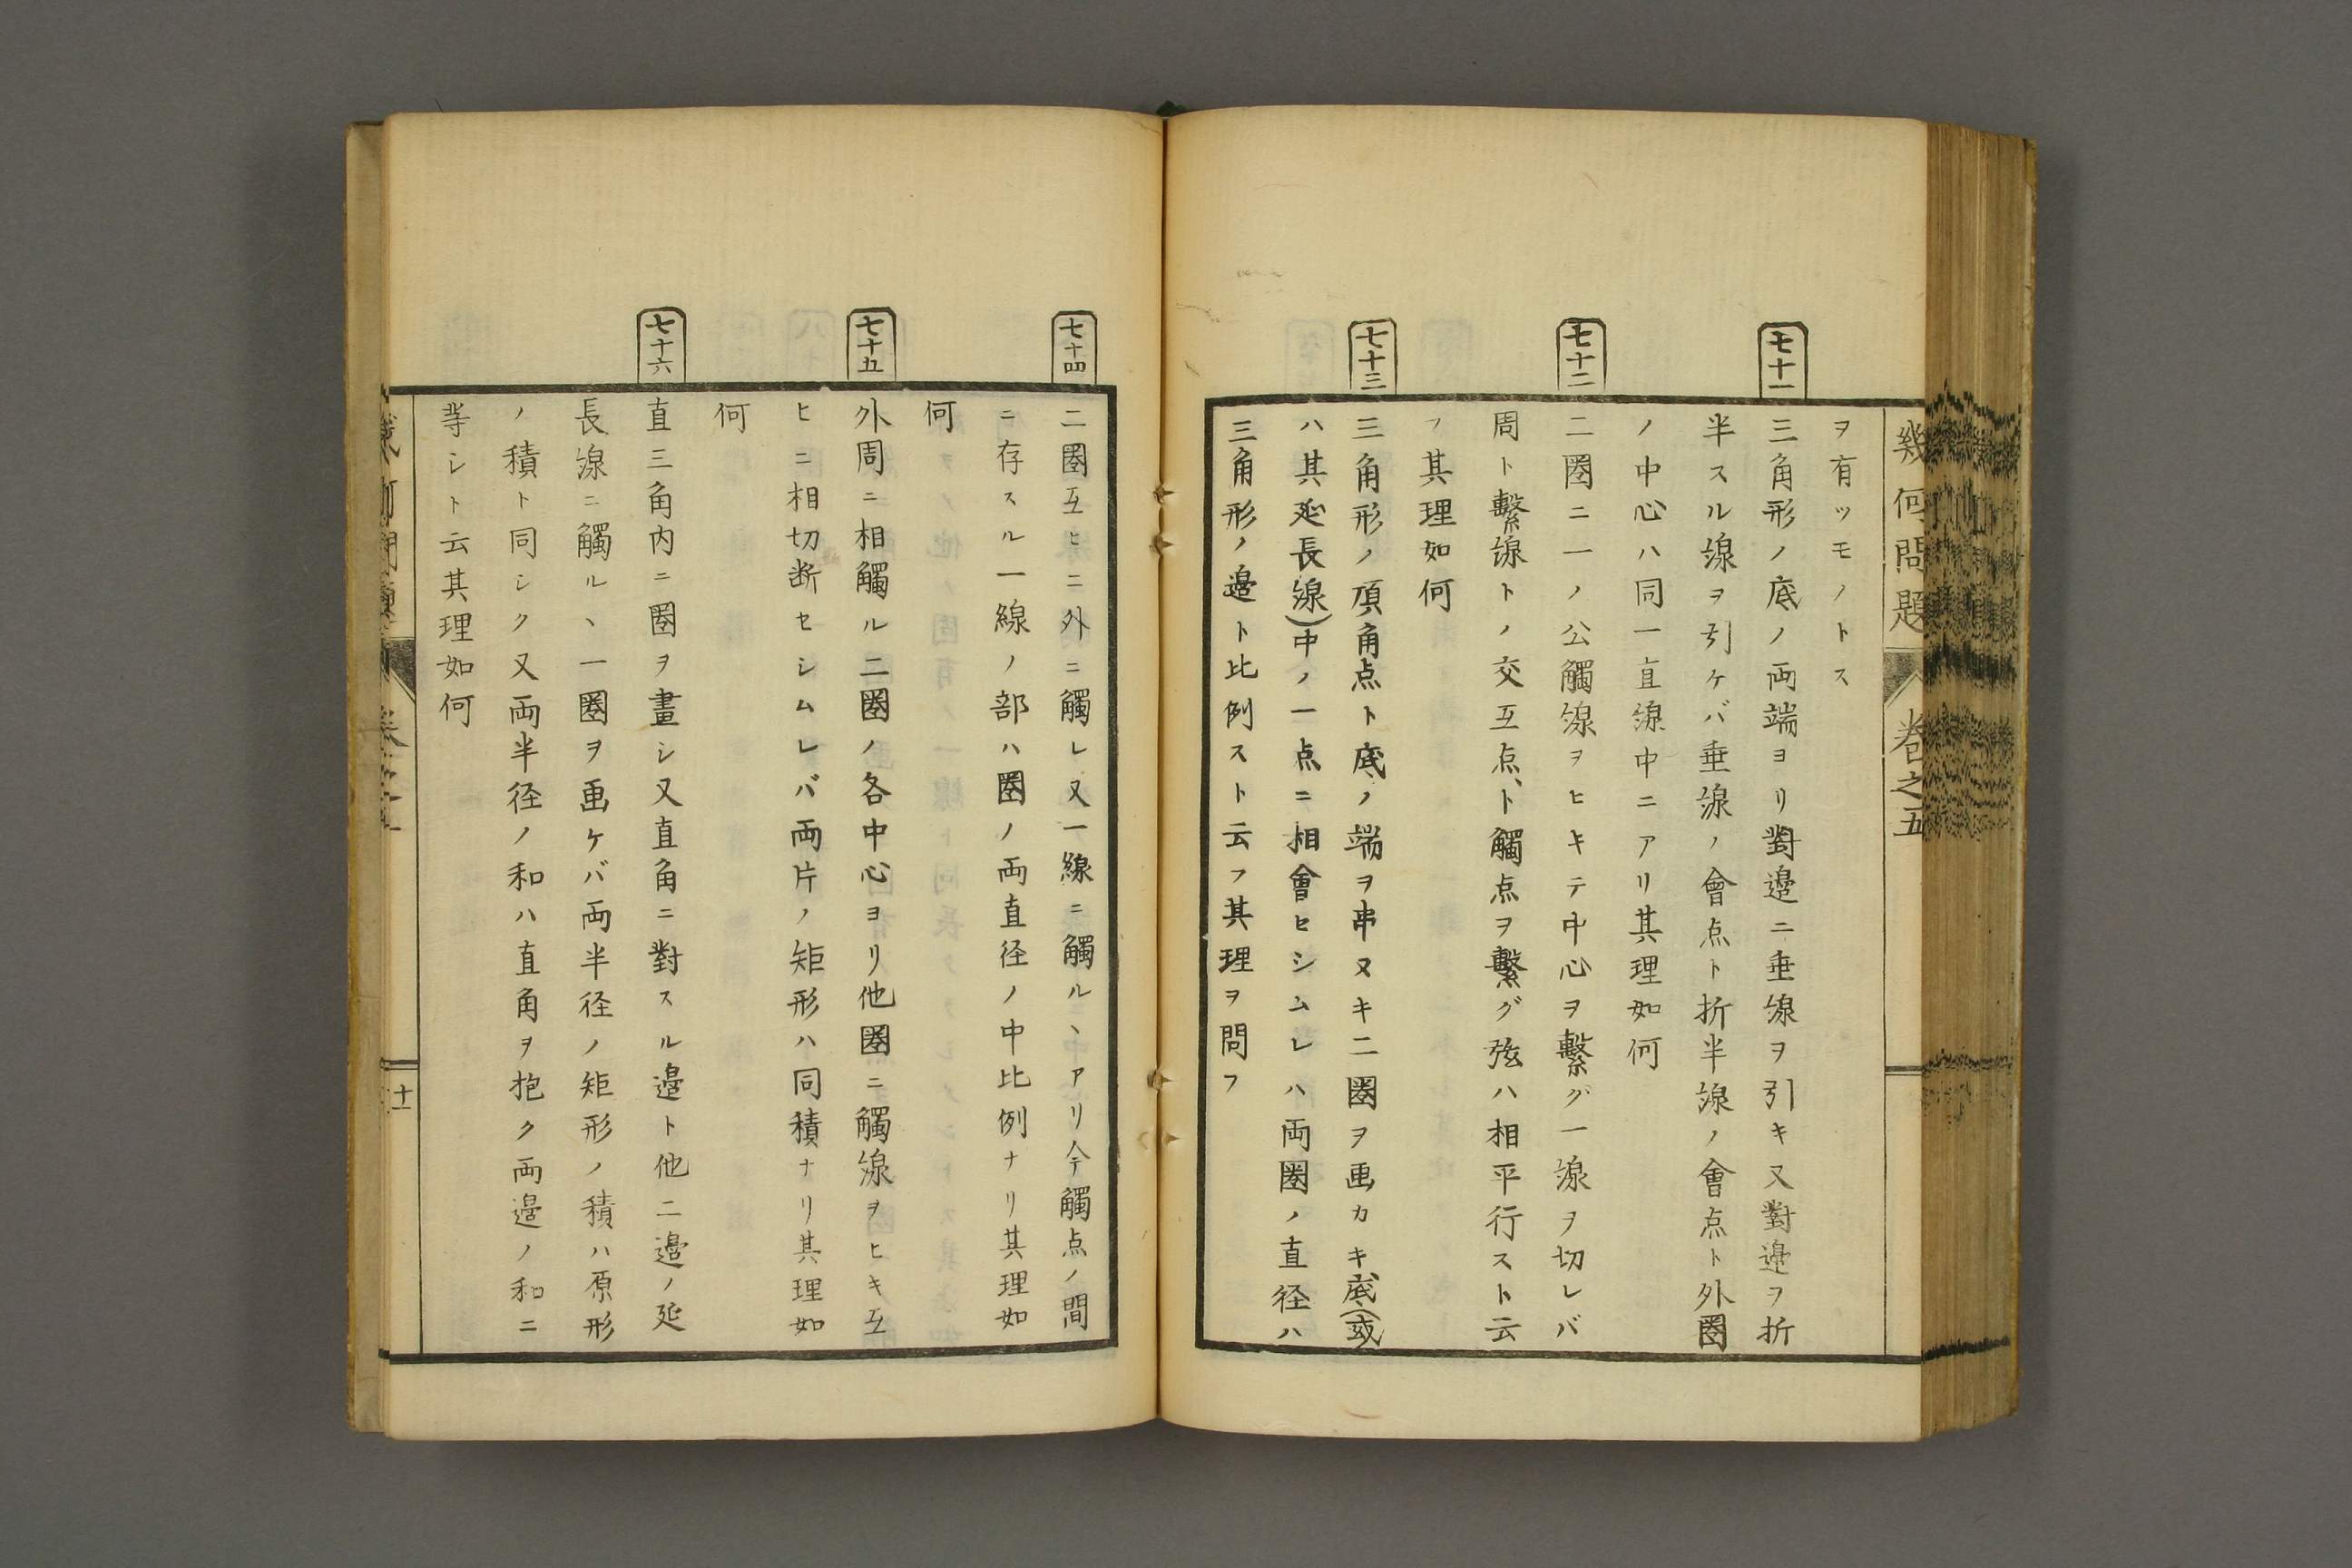 幾何問題 卷之五
ヲ有ツモノトス
七十一
三角形ノ底ノ両端ヨリ對邉ニ垂線ヲ引キ又對邉ヲ折
半スル線ヲ引ケバ垂線ノ會点ト折半線ノ會点ト外圏
ノ中心ハ同一直線中ニアリ其理如何
七十二
二圏ニ一ノ公觸線ヲヒキテ中心ヲ繫グ一線ヲ切レバ
周ト繫線トノ交互点、ト觸点ヲ繫グ弦ハ相平行スト云
フ其理如何
七十三
三角形ノ頂角点ト底ノ端ヲ串ヌキ二圏ヲ画カキ底(或
ハ其延長線)中ノ一点ニ相會セシムレハ両圏ノ直径ハ
三角形ノ邉ト比例スト云フ其理ヲ問フ
七十四
二圏互ヒニ外ニ觸レ又一線ニ觸ルヽアリ今觸点ノ間
ニ存スル一線ノ部ハ圏ノ両直径ノ中比例ナリ其理如
何
七十五
外周ニ相觸ル二圏ノ各中心ヨリ他圏ニ觸線ヲヒキ互
ヒニ相切断セシムレバ両片ノ矩形ハ同積ナリ其理如
何
七十六
直三角内ニ圏ヲ畫シ又直角ニ對スル邉ト他二邉ノ延
長線ニ觸ルヽ一圏ヲ画ケバ両半径ノ矩形ノ積ハ原形
ノ積ト同シク又両半径ノ和ハ直角ヲ抱ク両邉ノ和ニ
等シト云其理如何
十一